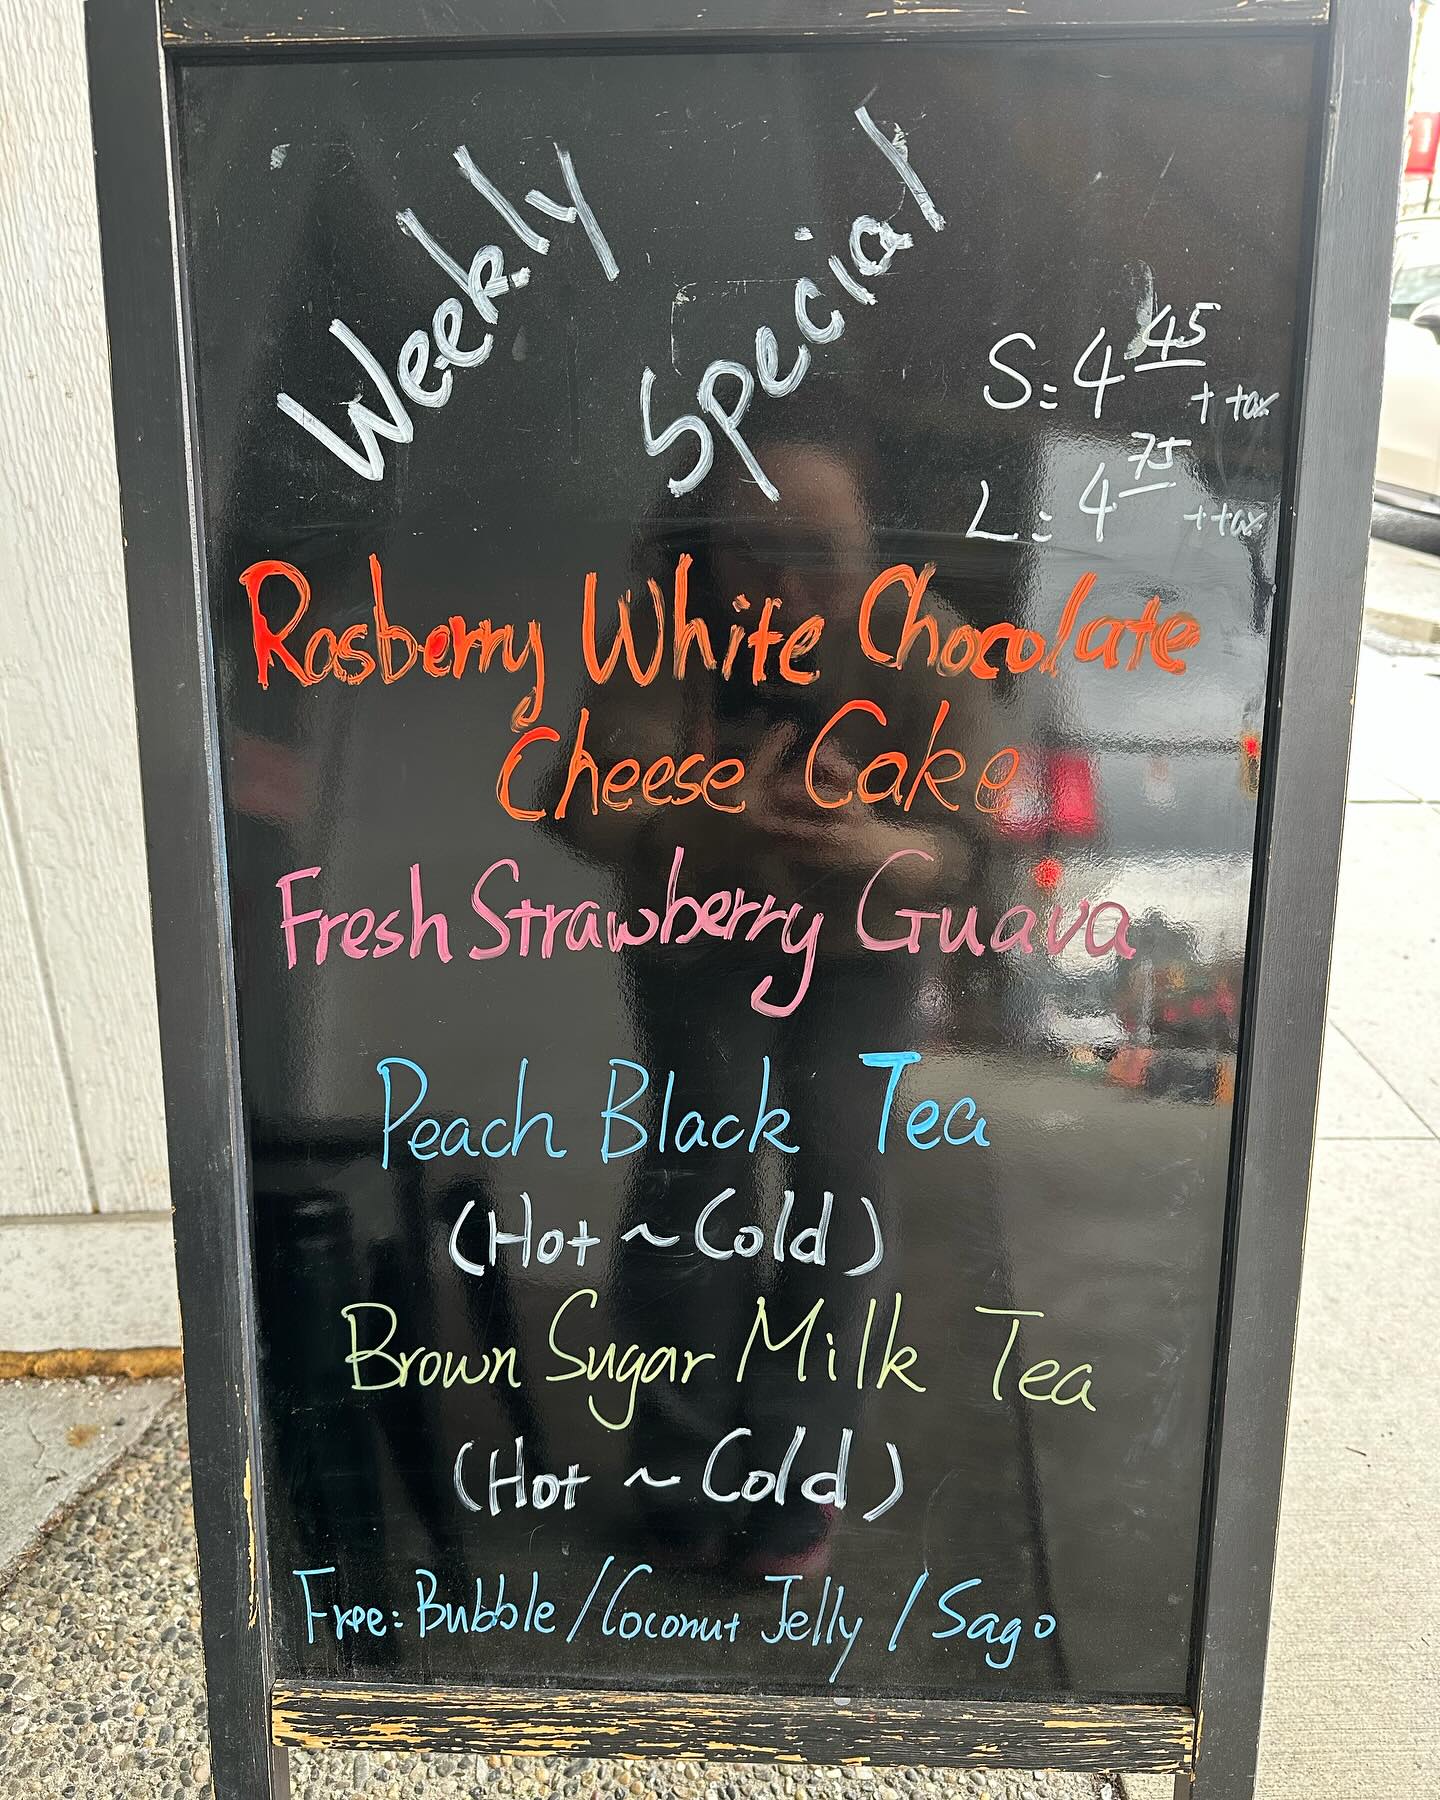 Weekly Special
S: 4 45 + tax
L: 4 75 + tax
Rasberry White Chocolate
Cheese Cake
Fresh Strawberry Guava
Peach Black Tea
(Hot ~ Cold)
Brown Sugar Milk Tea
(Hot ~ Cold)
Free: Bubble / Coconut Jelly / Sago